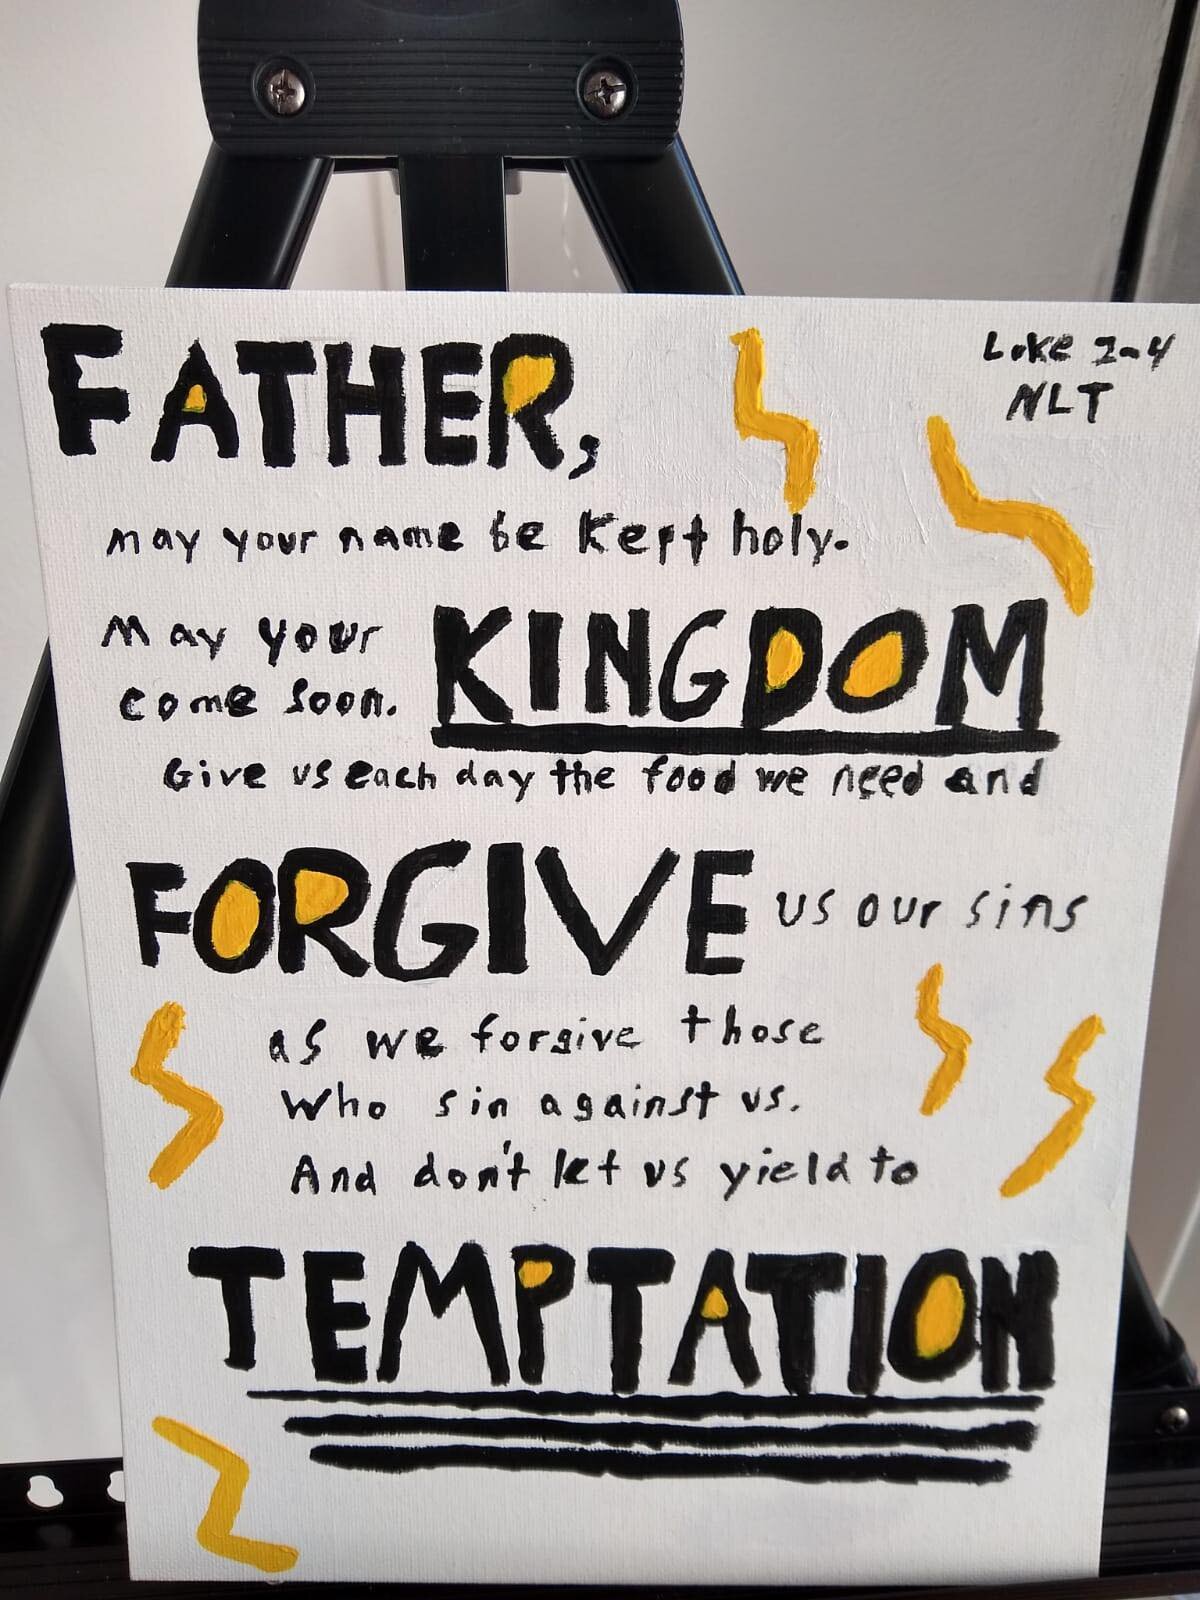 FATHER,
Luke 2-4
NLT
may your name be kept holy.
May your KINGDOM
come soon.
Give us each day the food we need and
FORGIVE us our sins
as we forgive those
who sin against us.
And don't let us yield to
TEMPTATION